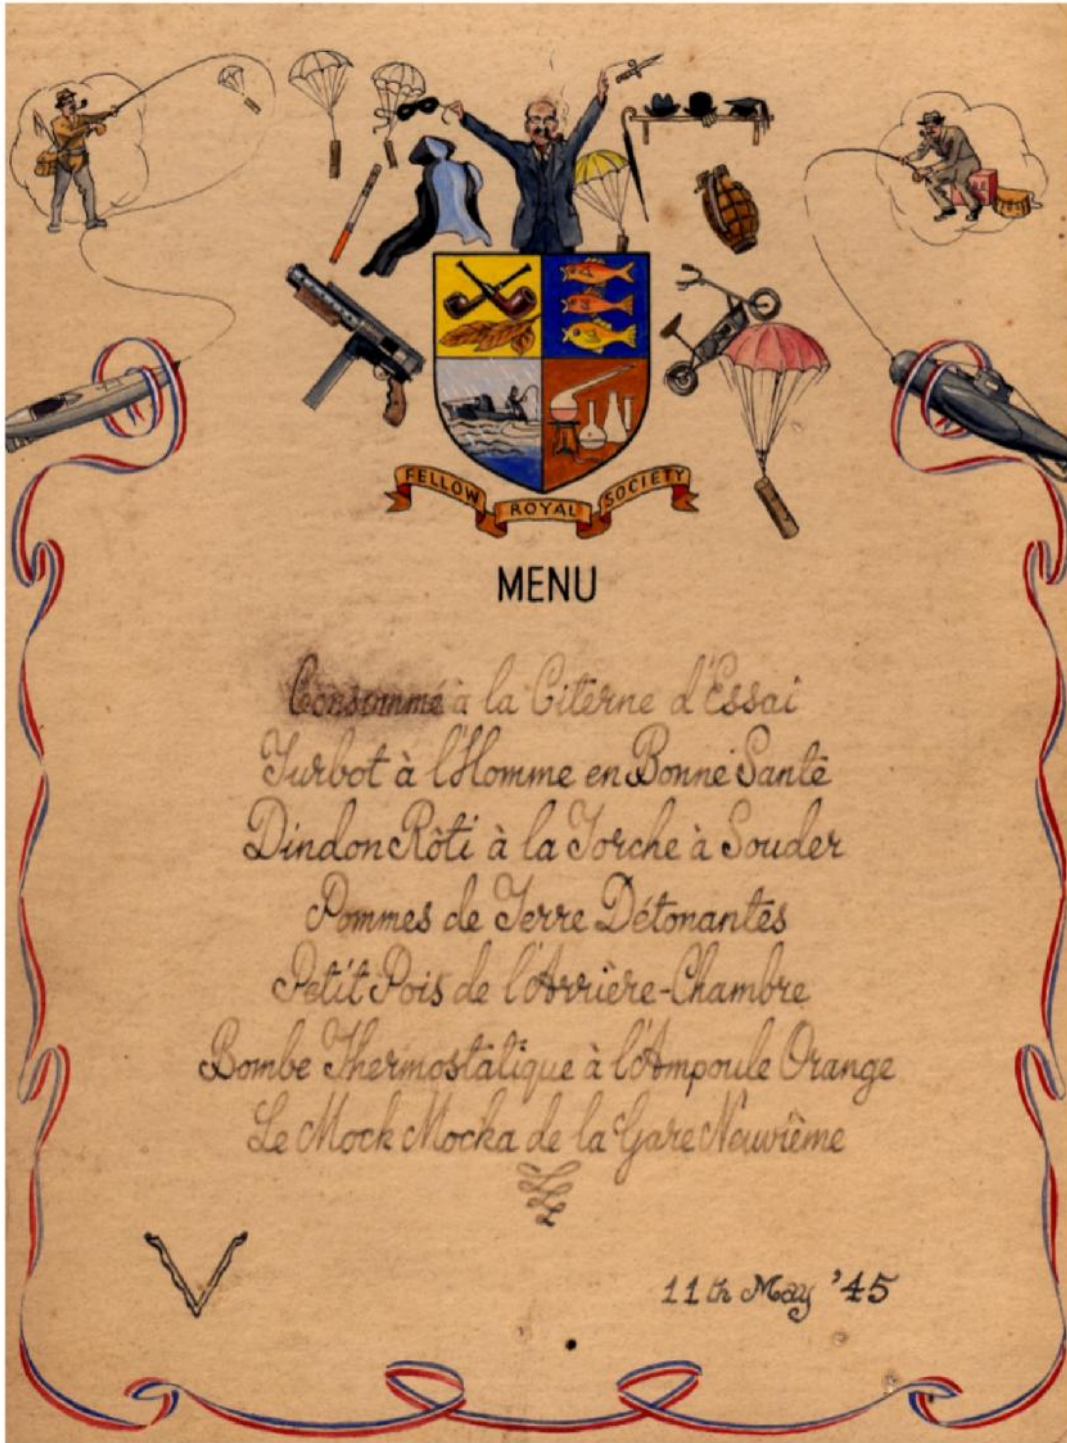 FELLOW ROYAL SOCIETY
MENU
Consommé à la Citerne d'Essai
Turbot à l'Homme en Bonne Santé
Dindon Rôti à la Torche à Souder
Pommes de Terre Détonantes
Petit Pois de l'Arrière-Chambre
Bombe Thermostatique à l'Ampoule Orange
Le Mock Mocka de la Gare Neuvième
V
11th May '45